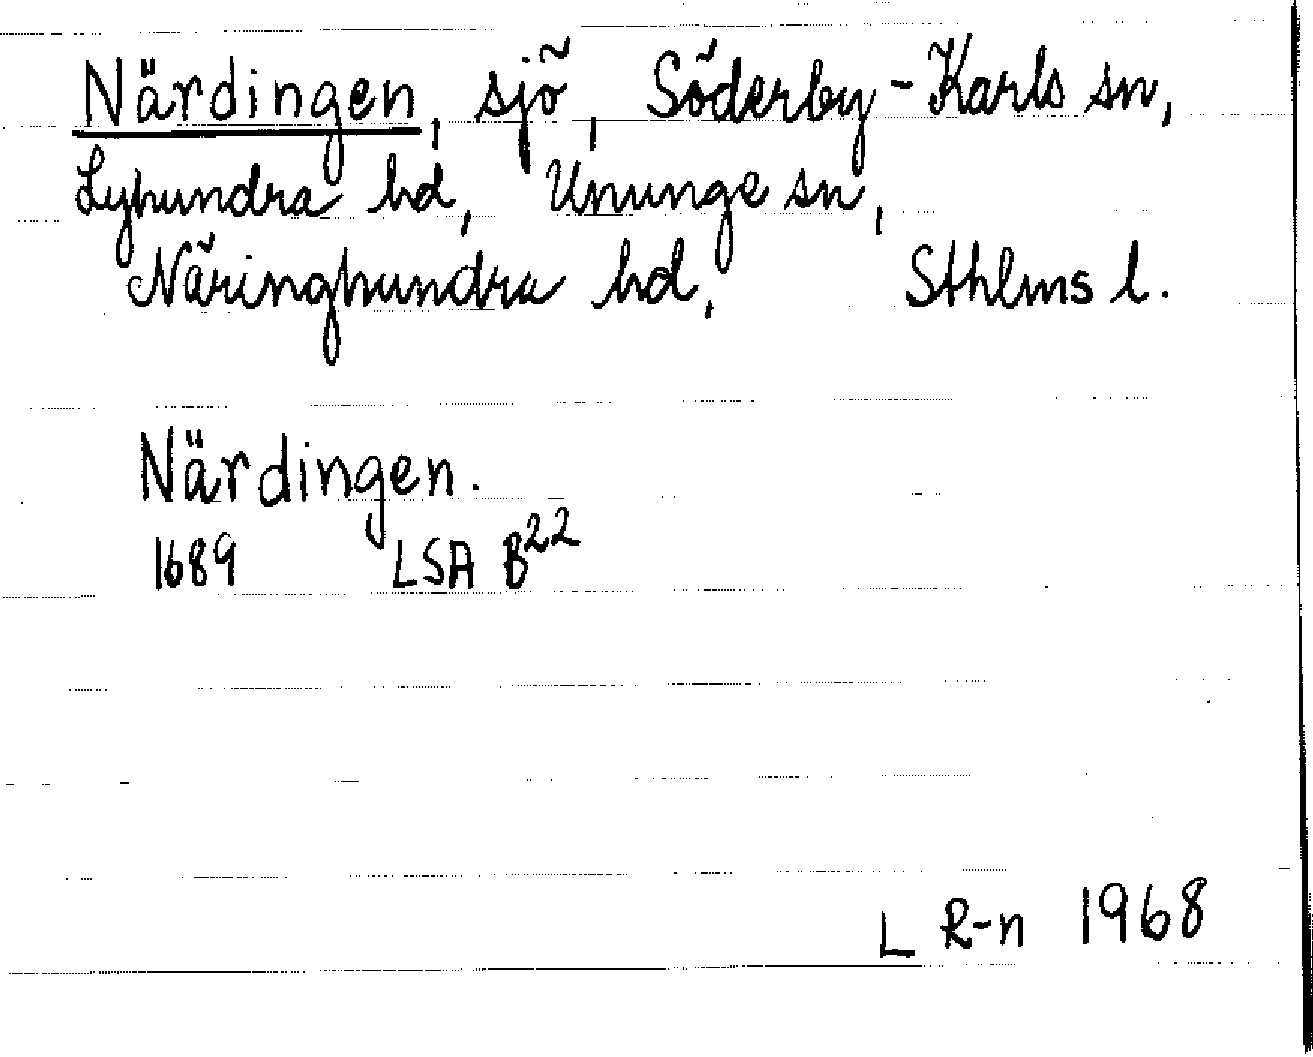 Närdingen, sjö, Söderby-Karls sn,
Lyhundra hd, Ununge sn,
Näringhundra hd, Sthlms l.
Närdingen.
1689 LSA B²²
L R-n 1968